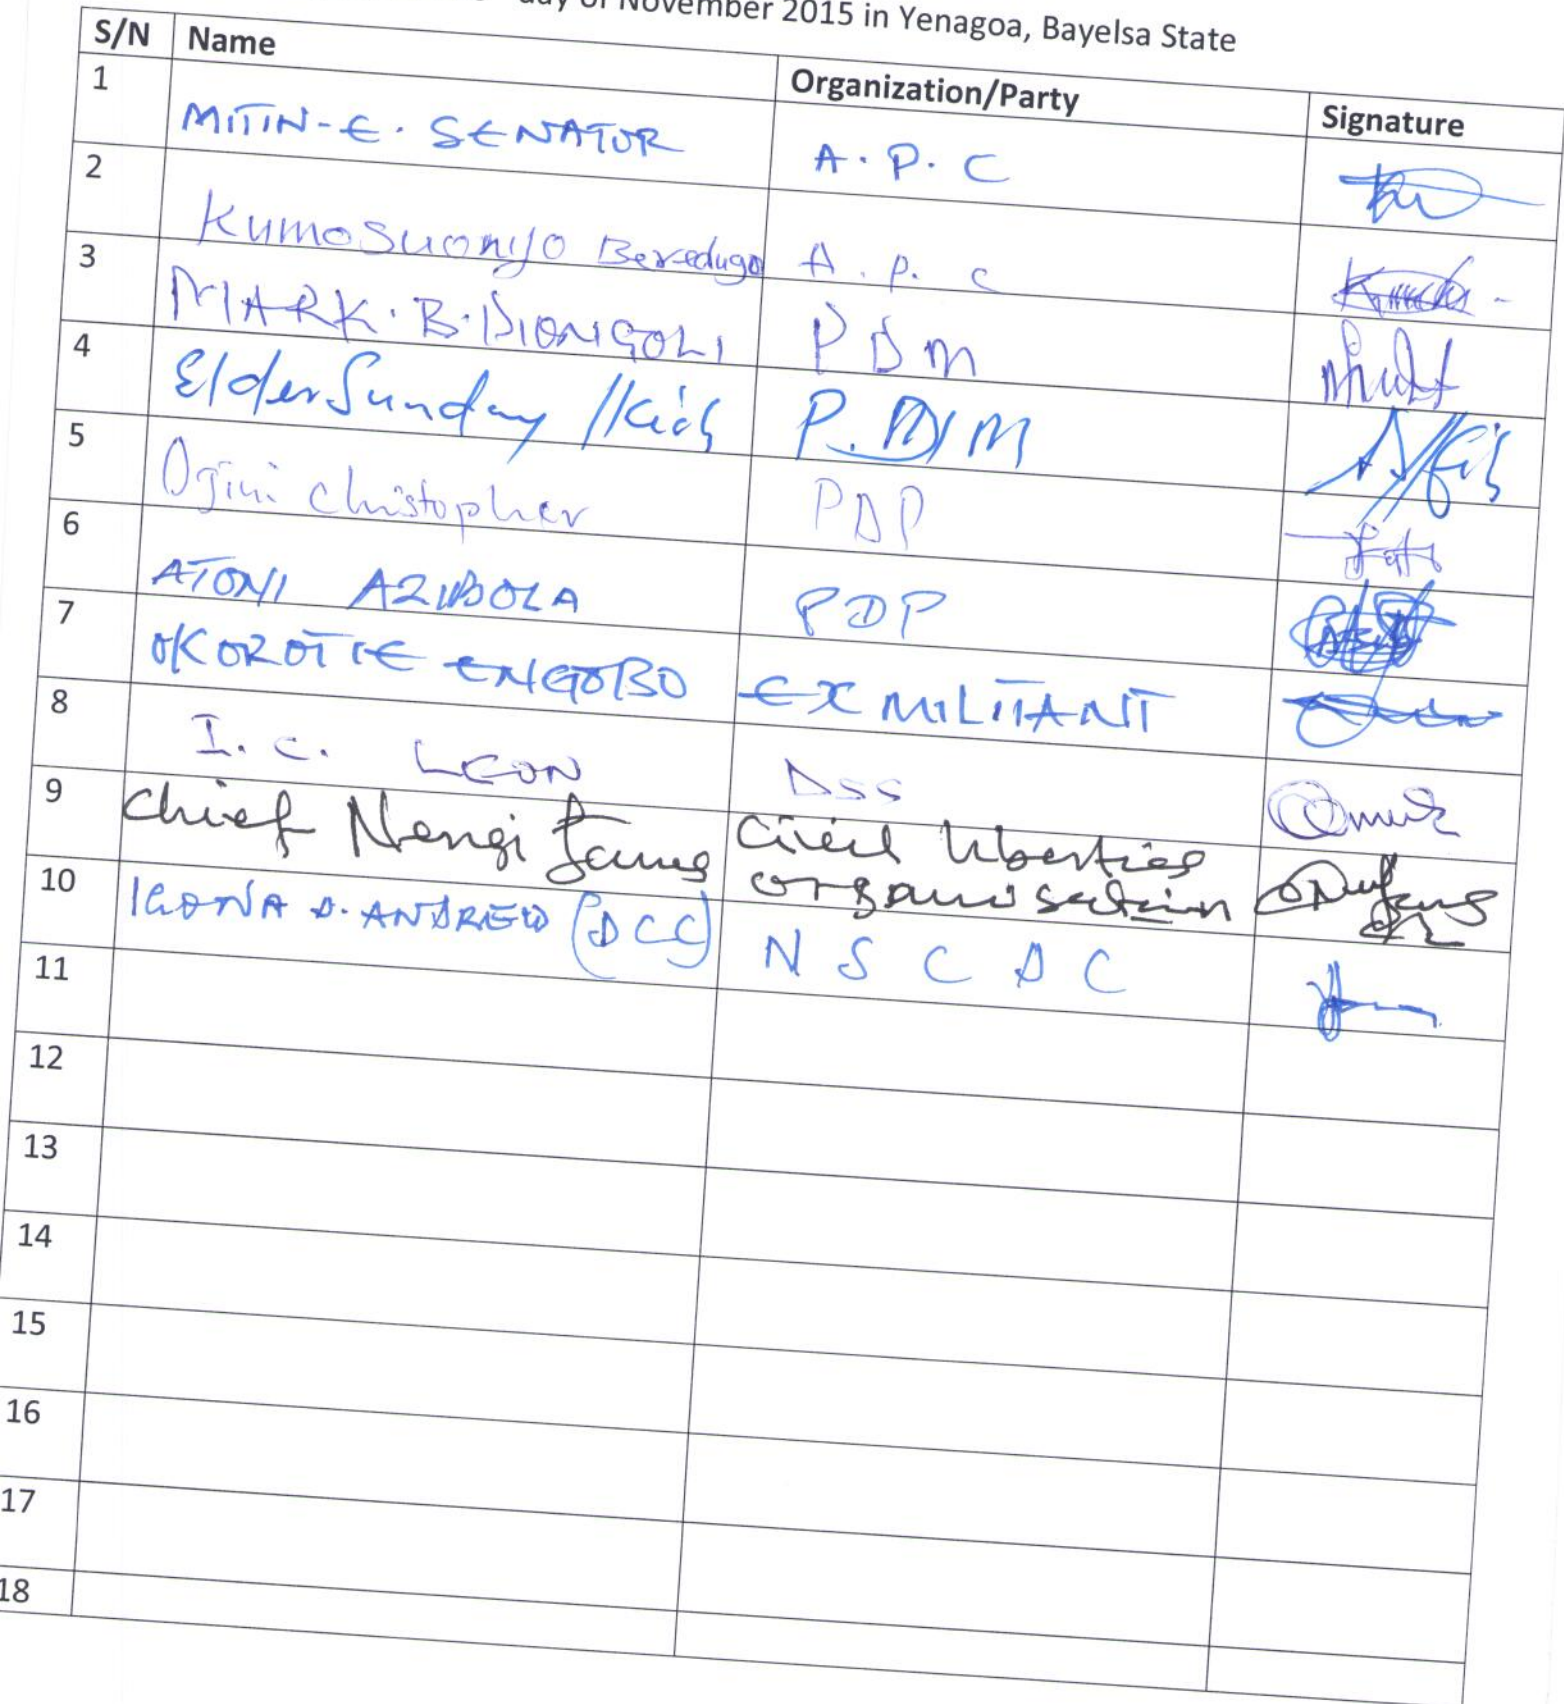 day of November 2015 in Yenagoa, Bayelsa State
S/N Name Organization/Party Signature
1 MITIN-E. SENATOR A.P.C
2 Kumosuonyo Beredugo A.P.C
3 MARK.B.DIONGOLI PDM
4 Elder Sunday P.D.M
5 Ogini Christopher PDP
6 ATONI AZIBOLA PDP
7 OKOROTIE ENGOBO EX MILITANT
8 I.C. LEON DSS
9 Chief Nengi James Civil liberties
organisation
10 IGONA D. ANDREW (DCC) NSCDC
11
12
13
14
15
16
17
18